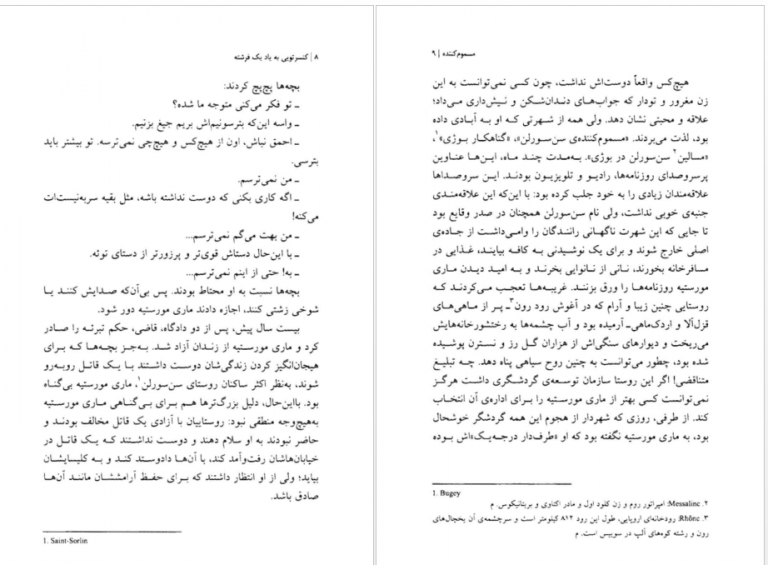 ۸ | کنسرتویی به یاد یک فرشته
بچه‌ها پچ‌پچ کردند:
ـ تو فکر می‌کنی متوجه ما شده؟
ـ واسه این‌که بترسونیم‌اش بریم جیغ بزنیم.
ـ احمق نباش، اون از هیچ‌کس و هیچ‌چی نمی‌ترسه. تو بیشتر باید
بترسی.
ـ من نمی‌ترسم.
ـ اگه کاری بکنی که دوست نداشته باشه، مثل بقیه سربه‌نیست‌ات
می‌کنه!
ـ من بهت می‌گم نمی‌ترسم...
ـ با این‌حال دستاش قوی‌تر و پرزورتر از دستای توئه.
ـ به! حتی از اینم نمی‌ترسم...
بچه‌ها نسبت به او محتاط بودند. پس بی‌آن‌که صدایش کنند یا
شوخی زشتی کنند، اجازه دادند ماری مورستیه دور شود.
بیست سال پیش، پس از دو دادگاه، قاضی، حکم تبرئه را صادر
کرد و ماری مورستیه از زندان آزاد شد. به‌جز بچه‌ها که برای
هیجان‌انگیز کردن زندگی‌شان دوست داشتند با یک قاتل روبه‌رو
شوند، به‌نظر اکثر ساکنان روستای سن‌سورلن۱، ماری مورستیه بی‌گناه
بود. بااین‌حال، دلیل بزرگ‌ترها هم برای بی‌گناهی ماری مورستیه
به‌هیچ‌وجه منطقی نبود: روستاییان با آزادی یک قاتل مخالف بودند و
حاضر نبودند به او سلام دهند و دوست نداشتند که یک قاتل در
خیابان‌هاشان رفت‌وآمد کند، با آن‌ها دادوستد کند و به کلیسایشان
بیاید؛ ولی از او انتظار داشتند که برای حفظ آرامششان مانند آن‌ها
صادق باشد.
1. Saint-Sorlin
مسموم‌کننده | ۹
هیچ‌کس واقعاً دوست‌اش نداشت، چون کسی نمی‌توانست به این
زن مغرور و تودار که جواب‌های دندان‌شکن و نیش‌داری می‌داد؛
علاقه و محبتی نشان دهد. ولی همه از شهرتی که او به آبادی داده
بود، لذت می‌بردند. «مسموم‌کننده‌ی سن‌سورلن»، «گناهکار بوژی»۱،
«مسالین۲ سن‌سورلن در بوژی». به‌مدت چند ماه، این‌ها عناوین
پرسروصدای روزنامه‌ها، رادیو و تلویزیون بودند. این سروصداها
علاقه‌مندان زیادی را به خود جلب کرده بود: با این‌که این علاقه‌مندی
جنبه‌ی خوبی نداشت، ولی نام سن‌سورلن همچنان در صدر وقایع بود
تا جایی که این شهرت ناگهانی رانندگان را وامی‌داشت از جاده‌ی
اصلی خارج شوند و برای یک نوشیدنی به کافه بیایند، غذایی در
مسافرخانه بخورند، نانی از نانوایی بخرند و به امید دیدن ماری
مورستیه روزنامه‌ها را ورق بزنند. غریبه‌ها تعجب می‌کردند که
روستایی چنین زیبا و آرام که در آغوش رود رون۳ـ پر از ماهی‌های
قزل‌آلا و اردک‌ماهی‌ـ آرمیده بود و آب چشمه‌ها به رختشورخانه‌هایش
می‌ریخت و دیوارهای سنگی‌اش از هزاران گل رز و نسترن پوشیده
شده بود، چطور می‌توانست به چنین روح سیاهی پناه دهد. چه تبلیغ
متناقضی! اگر این روستا سازمان توسعه‌ی گردشگری داشت هرگز
نمی‌توانست کسی بهتر از ماری مورستیه را برای اداره‌ی آن انتخاب
کند. از طرفی، روزی که شهردار از هجوم این همه گردشگر خوشحال
بود، به ماری مورستیه نگفته بود که او «طرف‌دار درجه‌یک»اش بوده
1. Bugey
۲. Messaline: امپراتور روم و زن کلود اول و مادر اکتاوی و بریتانیکوس. م
۳. Rhône: رودخانه‌ی اروپایی، طول این رود ۸۱۲ کیلومتر است و سرچشمه‌ی آن یخچال‌های
رون و رشته کوه‌های آلپ در سوییس است. م